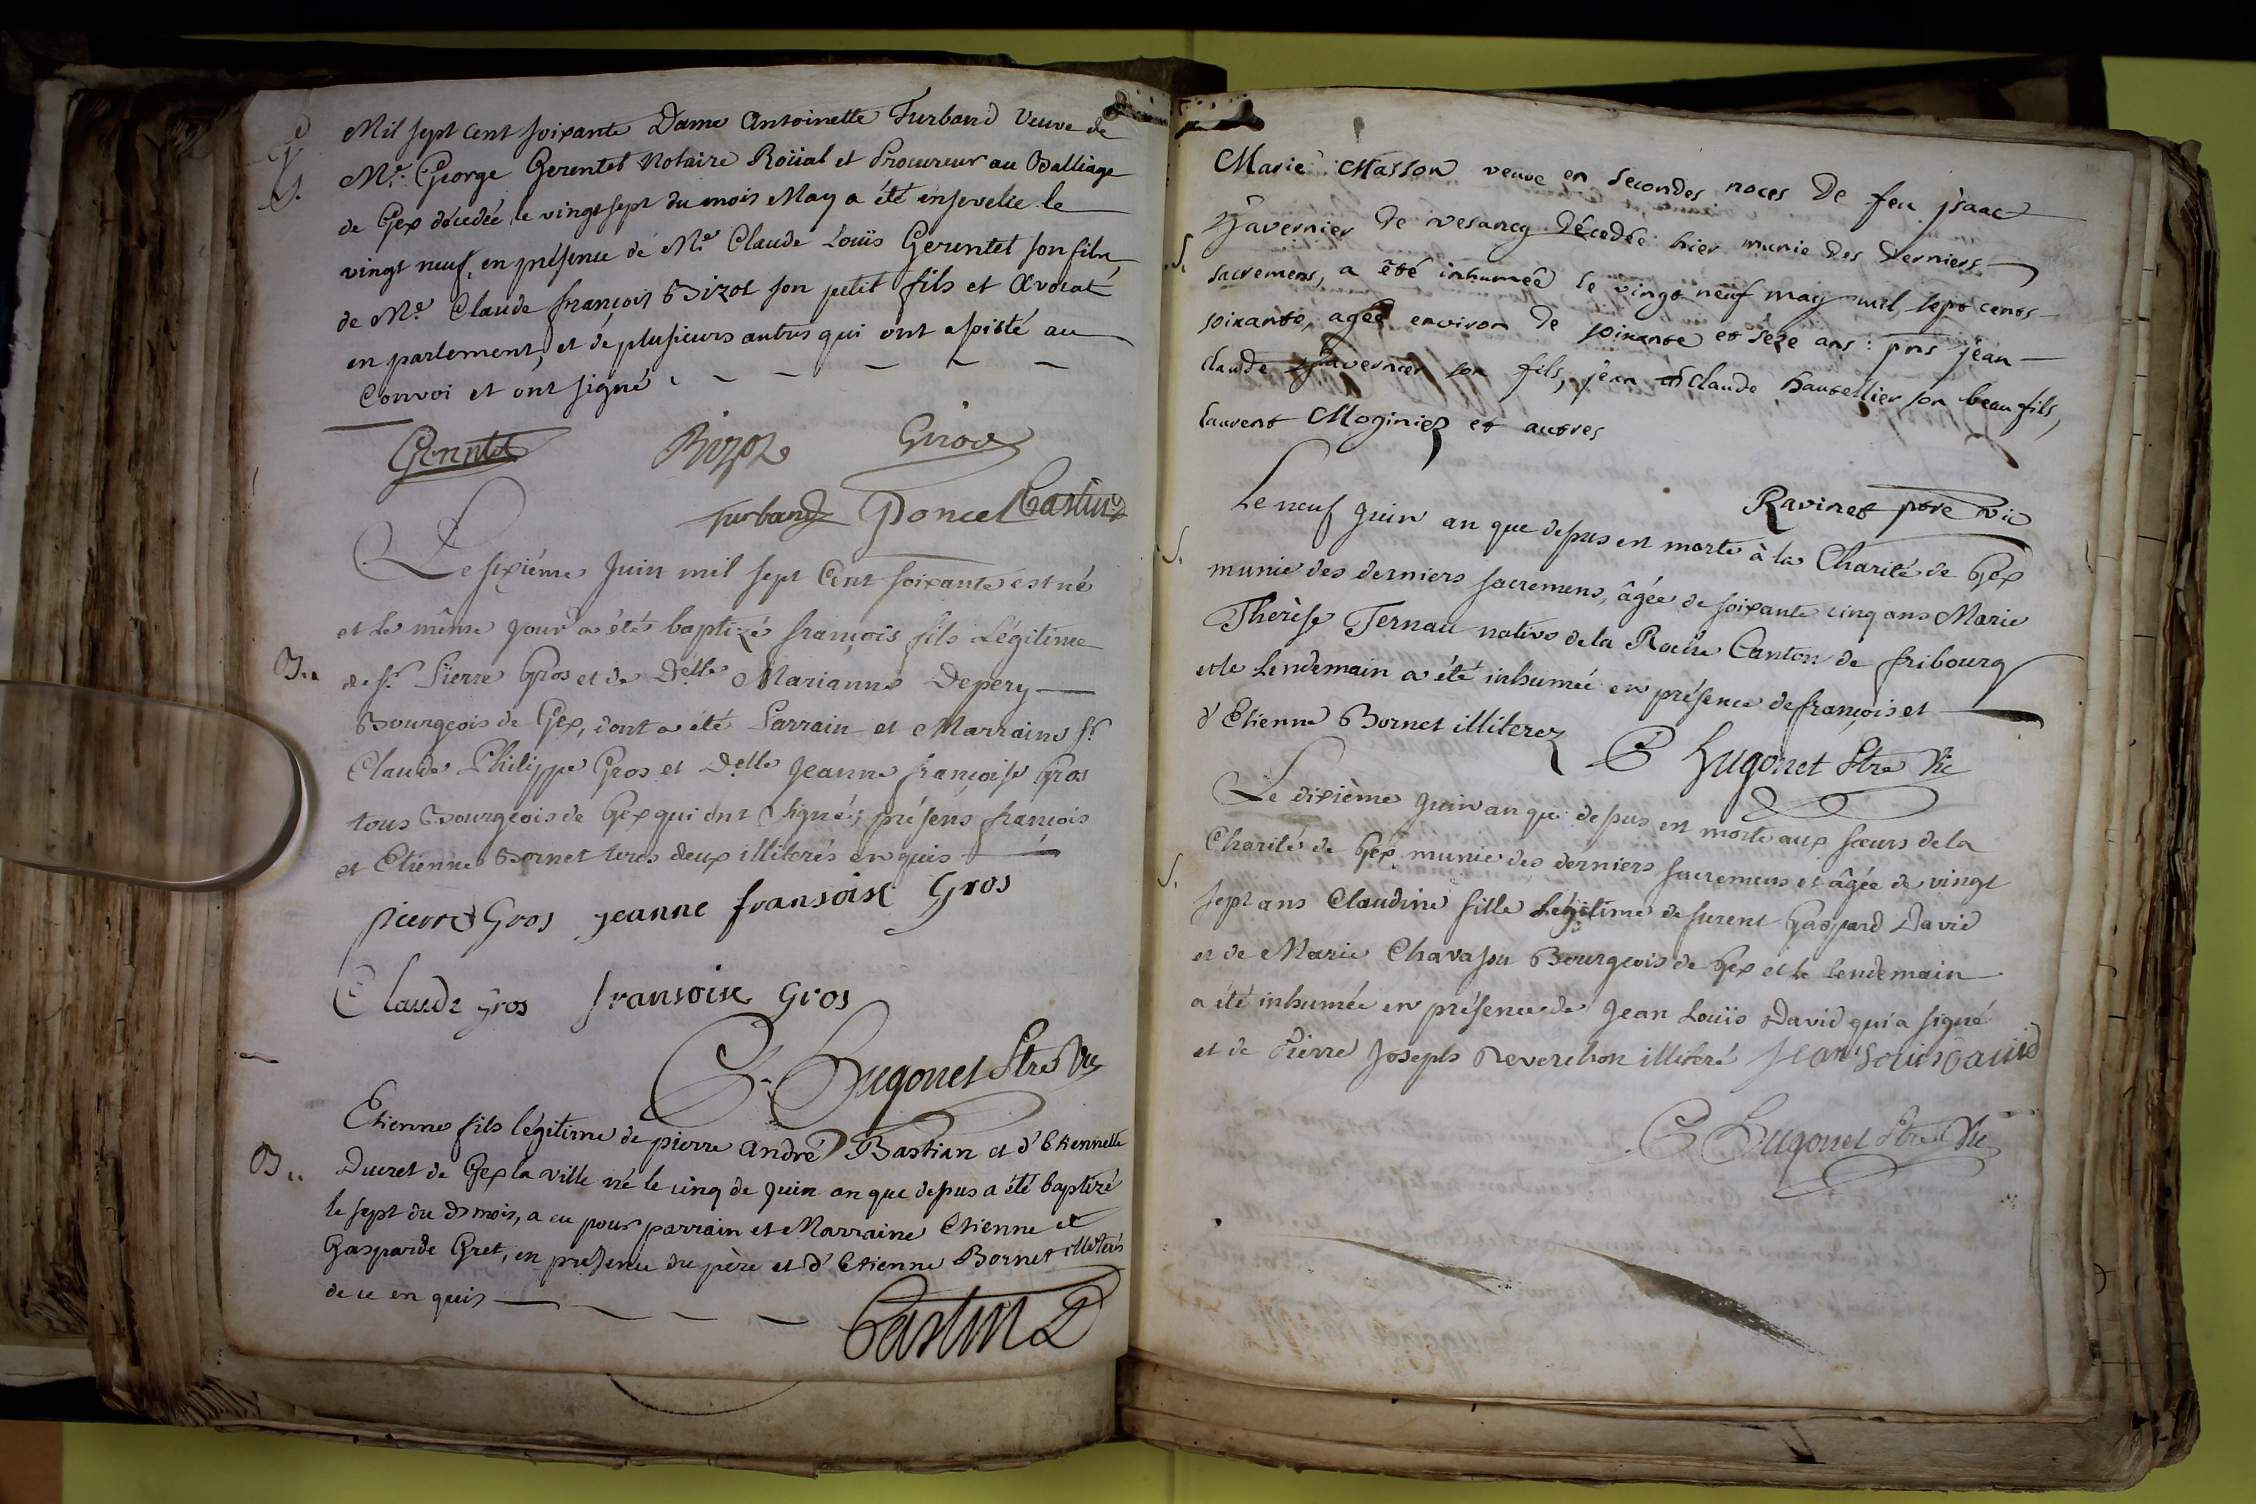 Mil sept cent soixante Dame Antoinette Turband Veuve de
S.
Me. George Gerentet Notaire Roïial et Procureur au Balliage
de Gex décédée le vingt sept du mois May a été ensevelie le
vingt neuf, en présence de Me. Claude Louïs Gerentet son fils
de Me. Claude françois Bizot son petit fils et Avocat
en parlement, et de plusieurs autres qui ont assisté au
Convoi et ont signé
Gerentet Bizot Girod
Turband Poncet Castin
Le sixiéme Juin mil sept Cent soixante est né
et le même jour a été baptizé françois fils Légitime
B..
de sr. Pierre Gros et de Delle Marianne Depery
Bourgeois de Gex, dont a été Parrain et Marraine sr.
Claude Philippe Gros et Delle Jeanne françoise Gros
tous Bourgeois de Gex qui ont signé; présens françois
et Etienne Bornet tous deux illiterés enquis
pierre Gros jeanne fransoise Gros
Claude gros fransoise Gros
C. Hugonet Ptre Vic
Etienne fils légitime de pierre André Bastian et d'Etiennette
B..
Ducret de Gex la ville né le cinq de Juin an que depus a été baptizé
le sept du d. mois, a eu pour parrain et Marraine Etienne et
Gasparde Gret, en présence du père et d'Etienne Bornet illiterés
de ce enquis
Castin
Marie Masson veuve en secondes noces De feu jsaac
S.
Tavernier De vesancy Décedée hier munie Des Derniers
sacremens, a été inhumée le vingt neuf may mil sept cents
soixante, agée environ De soixante et seze ans : pns jean
claude Tavernier son fils, jean claude hautellier son beau fils,
laurent Moginiez et autres
Ravinet ptre vic
S.
Le neuf Juin an que depus est morte à la Charité de Gex
munie des derniers sacremens, âgée de soixante cinq ans Marie
Thérèse Ternau native de la Roche Canton de fribourg
et le Lendemain a été inhumée en présence de françois et
d'Etienne Bornet illiterez C Hugonet Ptre Vic
Le dixième Juin an que depus est morte aux sœurs de la
S.
Charité de Gex munie des derniers sacremens et âgée de vingt
sept ans Claudine fille Légitime de furent Gaspard David
et de Marie Chavassu Bourgeois de Gex et le Lendemain
a été inhumée en présence de Jean Louïs David qui a signé
et de Pierre Joseph Reverchon illiteré jean Louis David
C Hugonet Ptre Vic